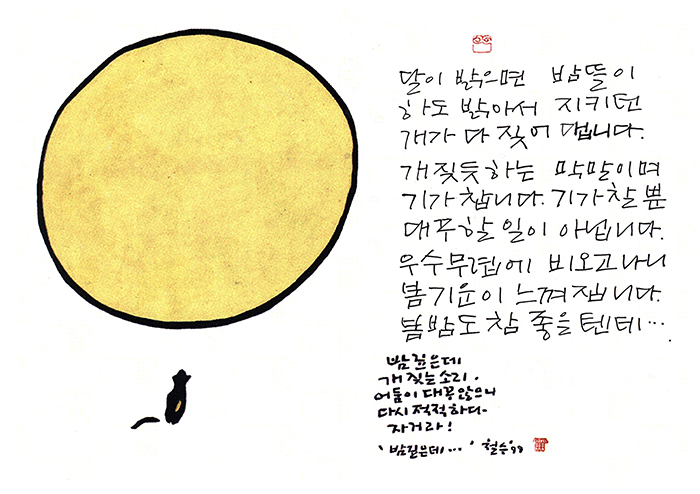 달이 밝으면 밤뜰이
하도 밝아서 지키던
개가 다 짖어 댑니다.
개 짖듯하는 막말이며
기가찹니다. 기가찰 뿐
대꾸할 일이 아닙니다.
우수무렵에 비오고나니
봄기운이 느껴집니다.
봄밤도 참 좋을텐데….
밤 깊은데
개 짖는 소리.
어둠이 대꾸않으니
다시 적적하다.
자거라!
'밤깊은데…' 철수